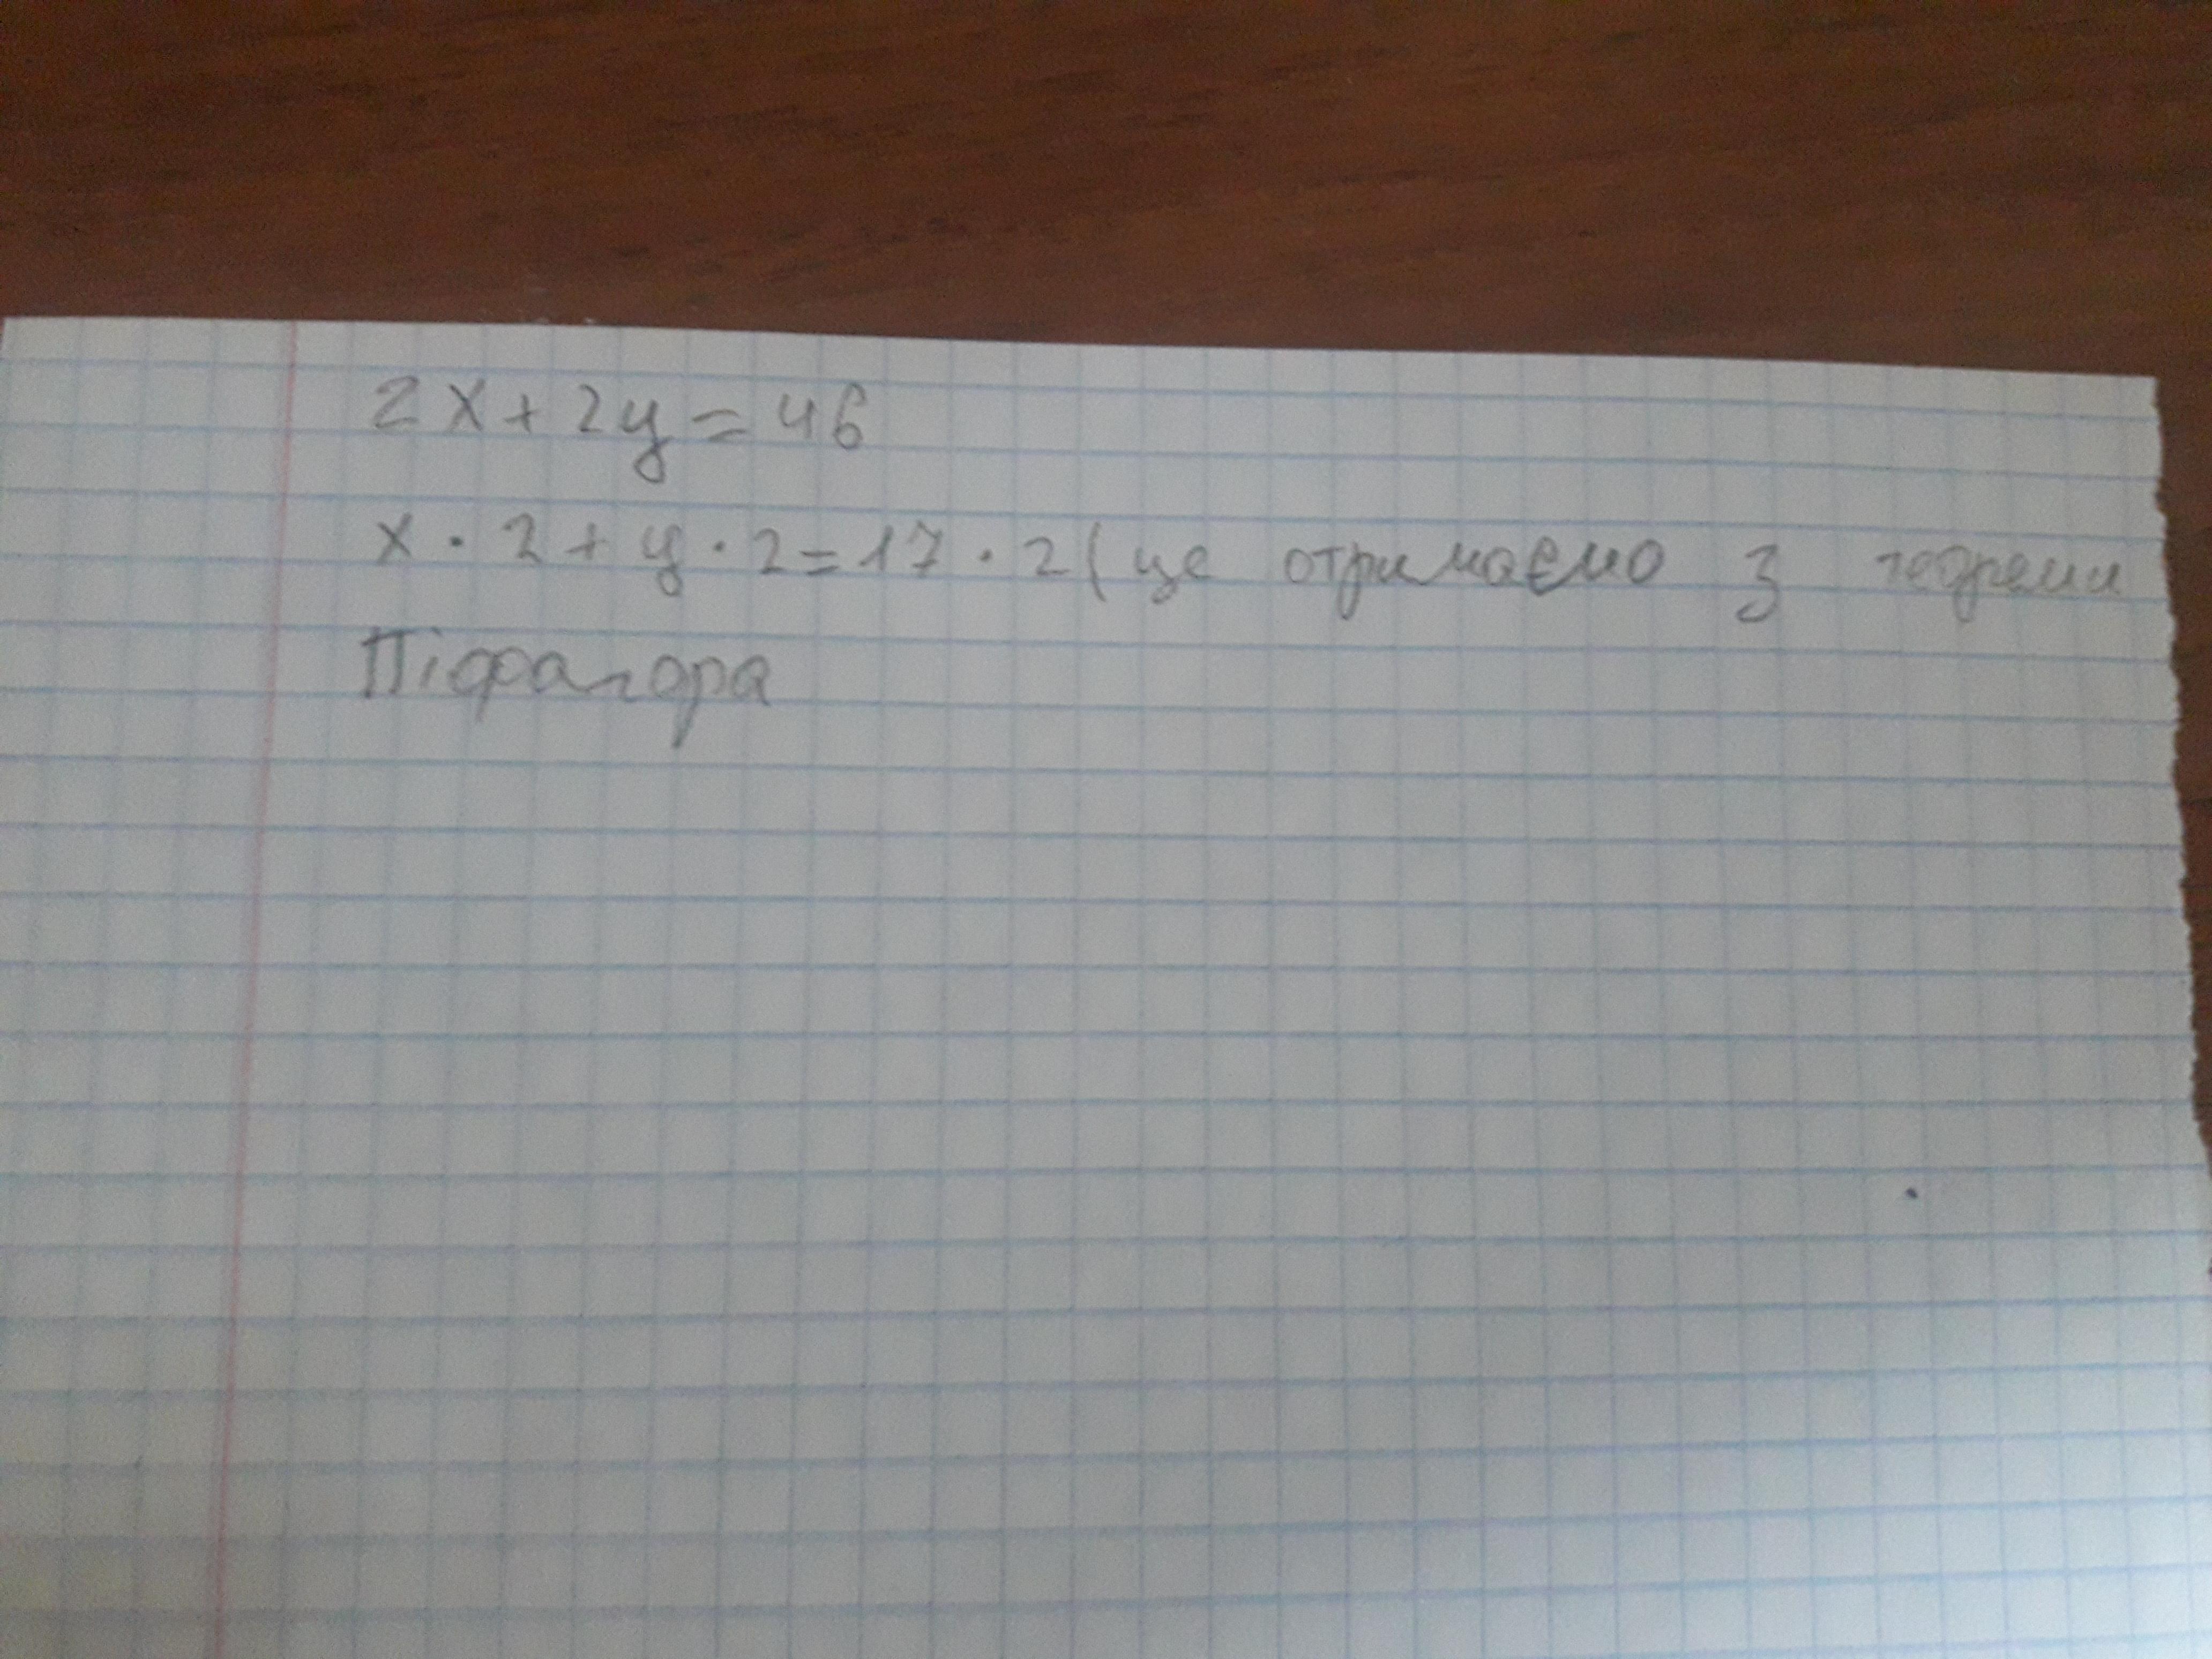 2x+2y=46
x·2+y·2=17·2(це отримаємо з теореми
Піфагора